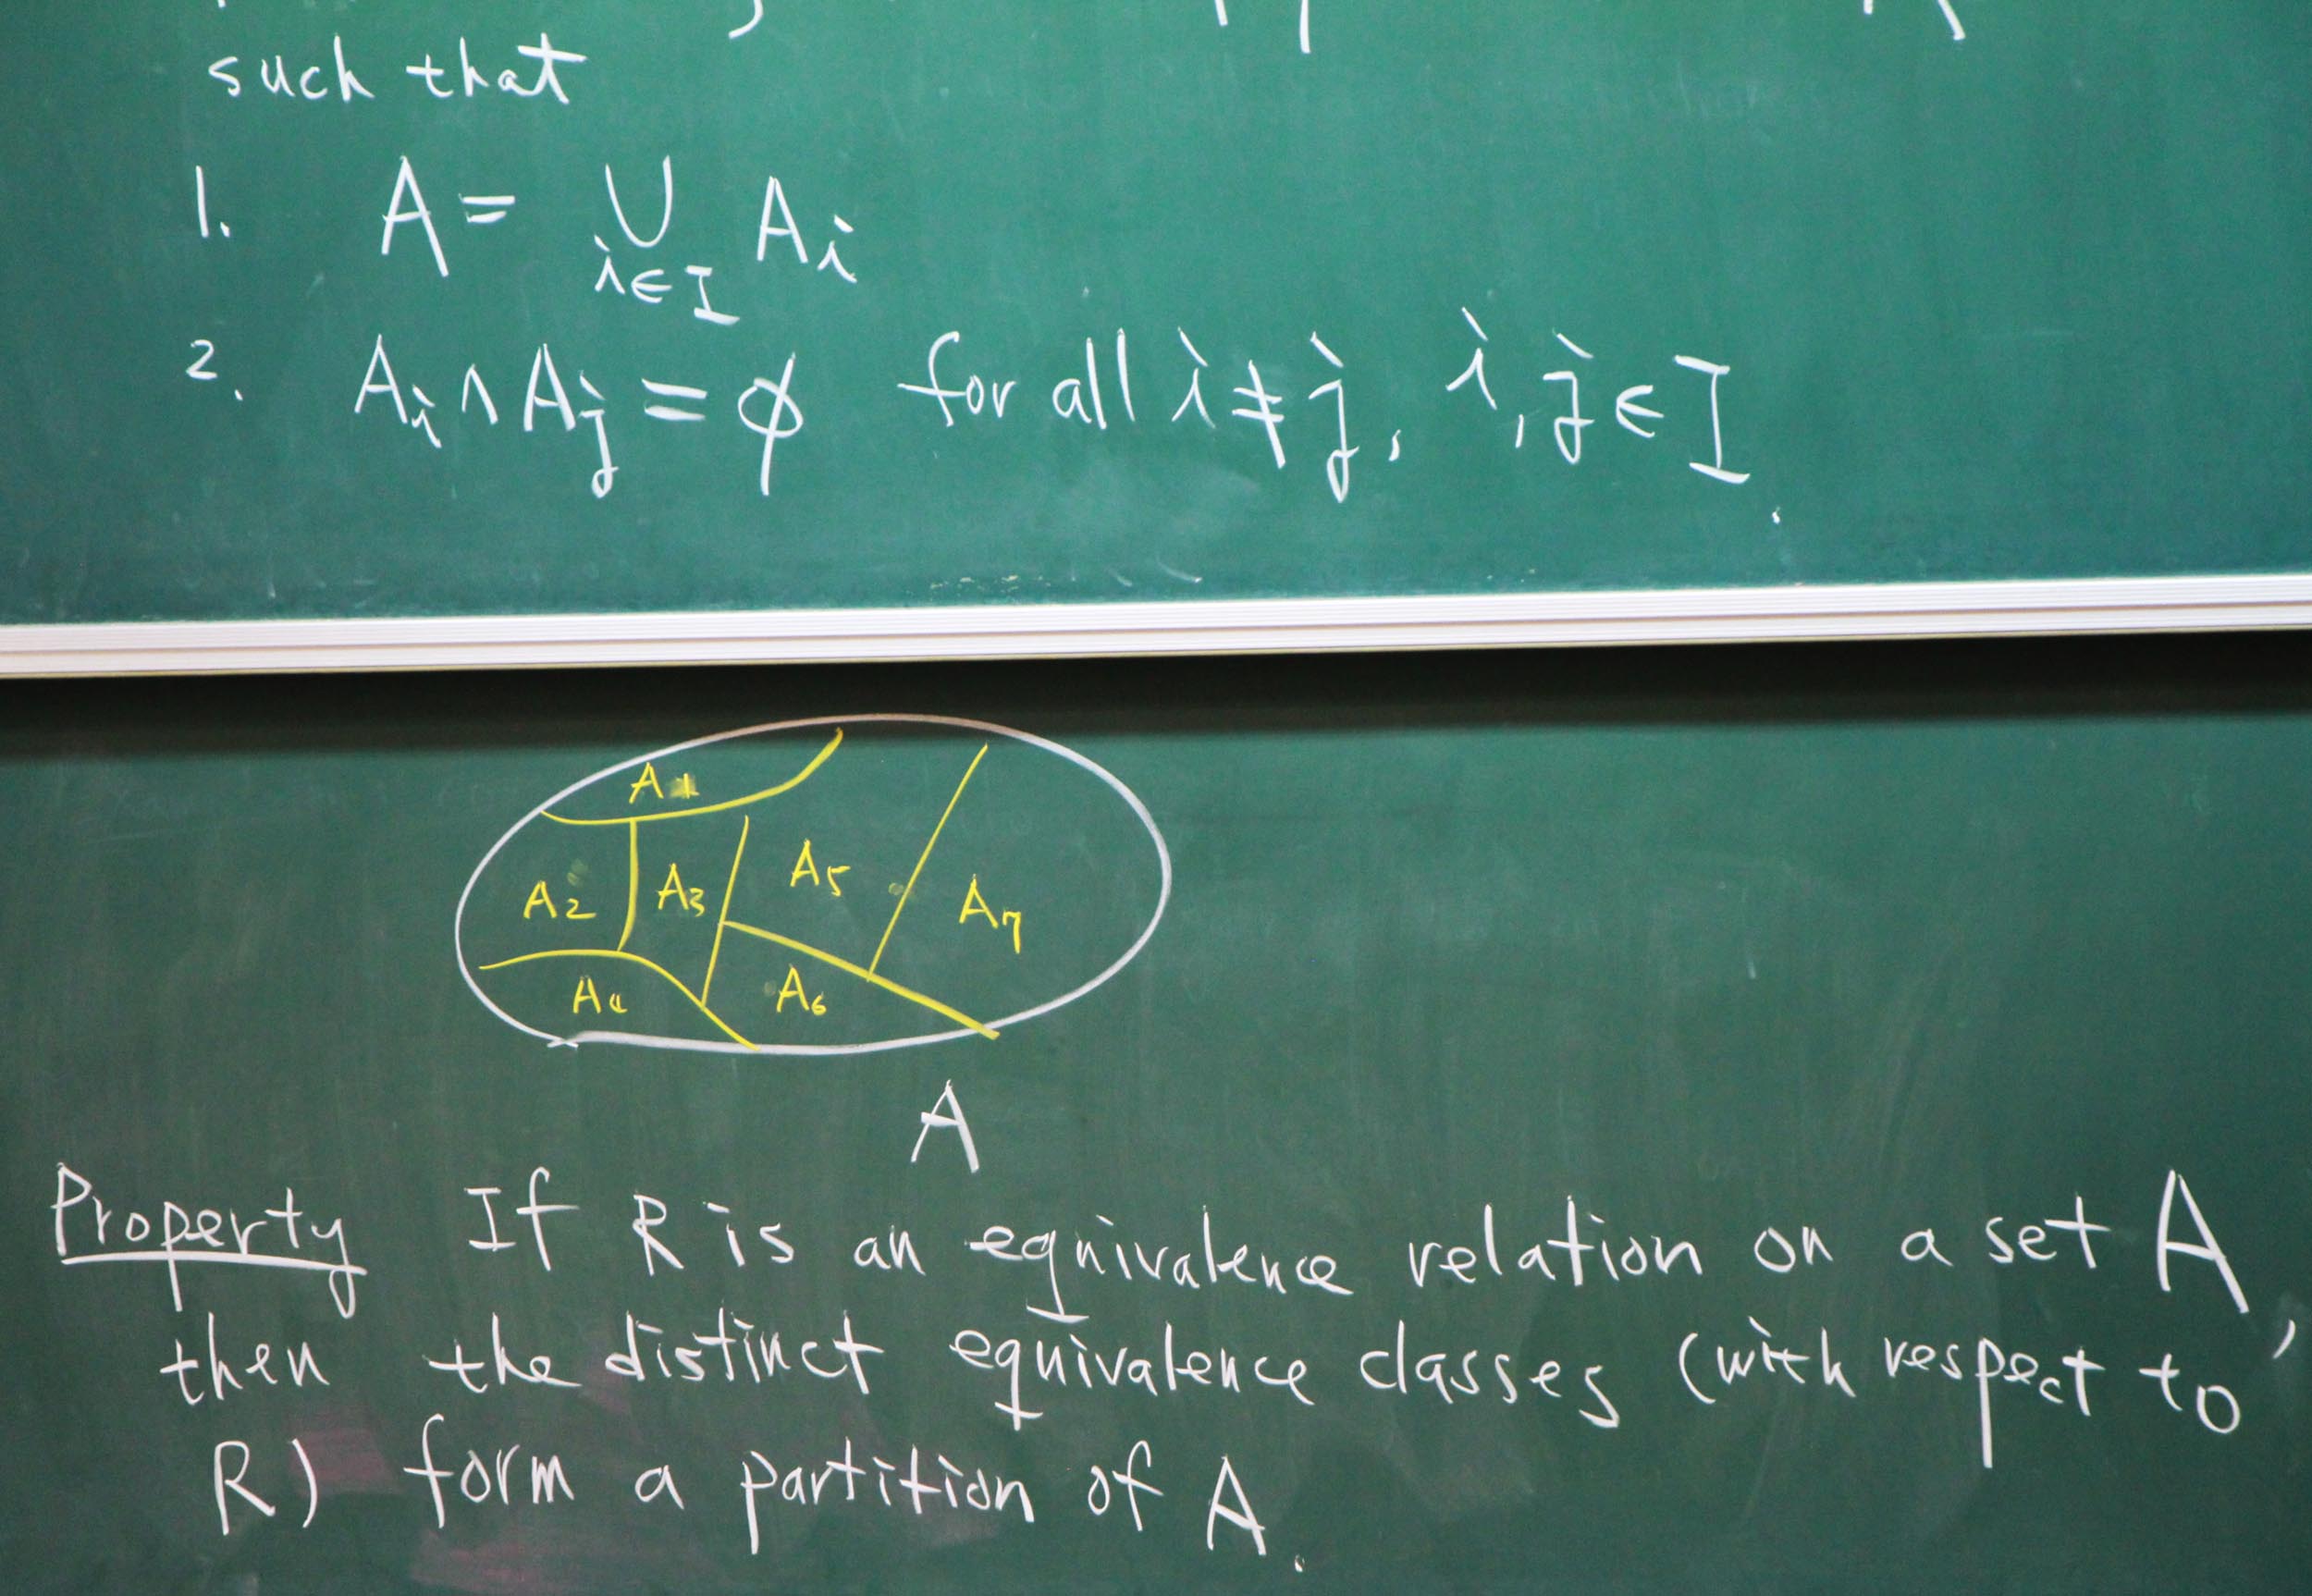 such that
1. A = ∪ Ai
i∈I
2. Ai ∩ Aj = ∅ for all i ≠ j, i, j ∈ I.
A1
A2 A3 A5 A7
A4 A6
A
Property If R is an equivalence relation on a set A,
then the distinct equivalence classes (with respect to
R) form a partition of A.